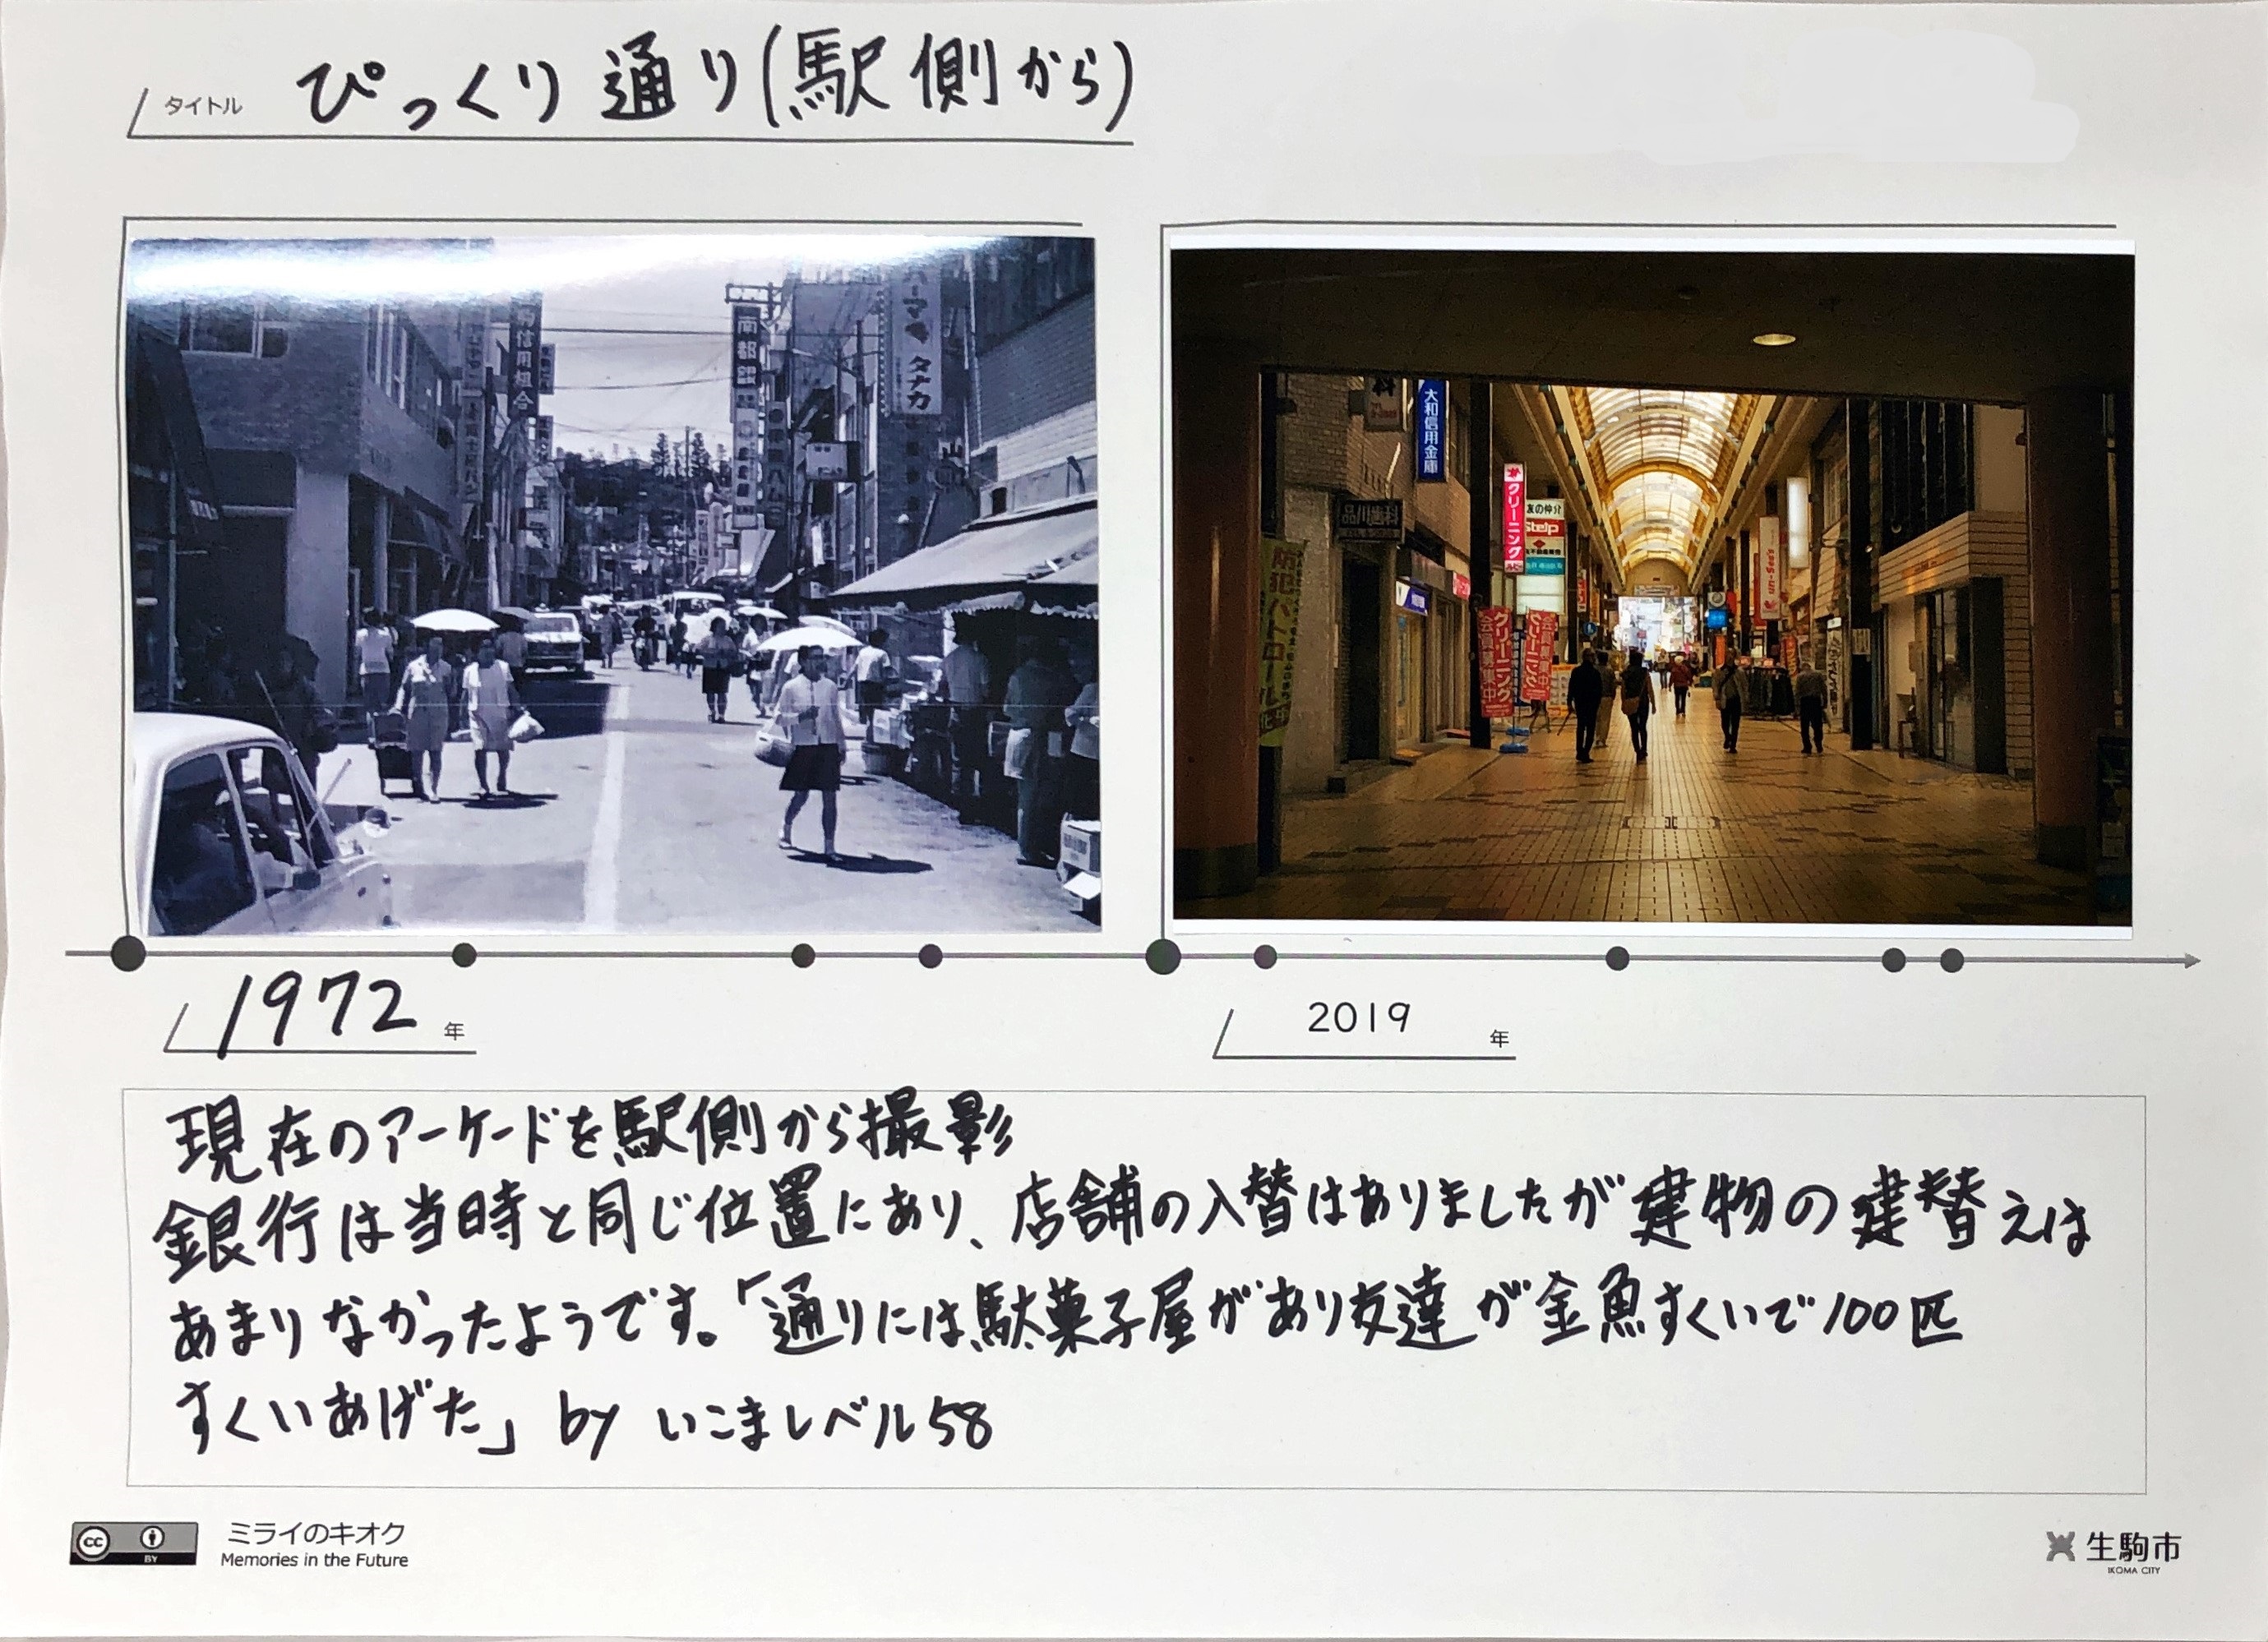 タイトル
ぴっくり通り(駅側から)
信用組合
南都銀
パーマ
タナカ
大和信用金庫
クリーニング
友の仲介
Stelp
科歯川品
防犯パトロール
クリーニング
会員募集中
クリーニング
会員募集中
1972年
2019年
現在のアーケードを駅側から撮影
銀行は当時と同じ位置にあり、店舗の入替はありましたが建物の建替えは
あまりなかったようです。「通りには駄菓子屋があり友達が金魚すくいで100匹
すくいあげた」 by いこまレベル58
cc
BY
ミライのキオク
Memories in the Future
生駒市
IKOMA CITY